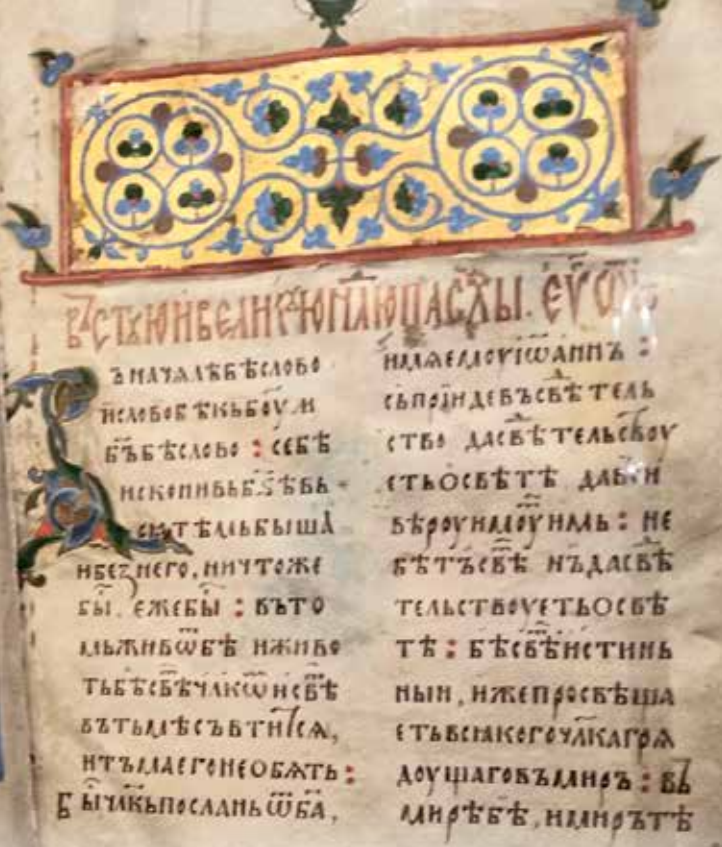 въ ст҃ую и великꙋю н҃лю пасхы. еѵ҃ ѿ
ъначѧлѣбѣслово
ислововѣкьб҃оу и
б҃ъбѣслово : себѣ
исконивьб҃ꙃѣвь
сѧтѣмьбышѧ
ибезнего, ничтоже
бы҃. ежебы҃ : въто
мьживѡбѣ иживо
тьбѣсвѣч҃лкѡ҃исвѣ
вътьмѣсъвтитсѧ,
итъмаегонеобѧть :
Бы҃ч҃лкьпосланьѿб҃а,
имяемоуіѡаннъ :
сьпрїидевъсвѣтель
ство дасвѣтельсвоу
етьосвѣтѣ давси
вѣроуимоуимь : не
бѣтъсвѣ нъдасвѣ
тельствоуетьосвѣ
тѣ : бѣсвѣ҃истинь
ныи, ижепросвѣша
етьвсиакогоч҃лкагрѧ
доушаговъмиръ : въ
мирѣбѣ, имирътѣ